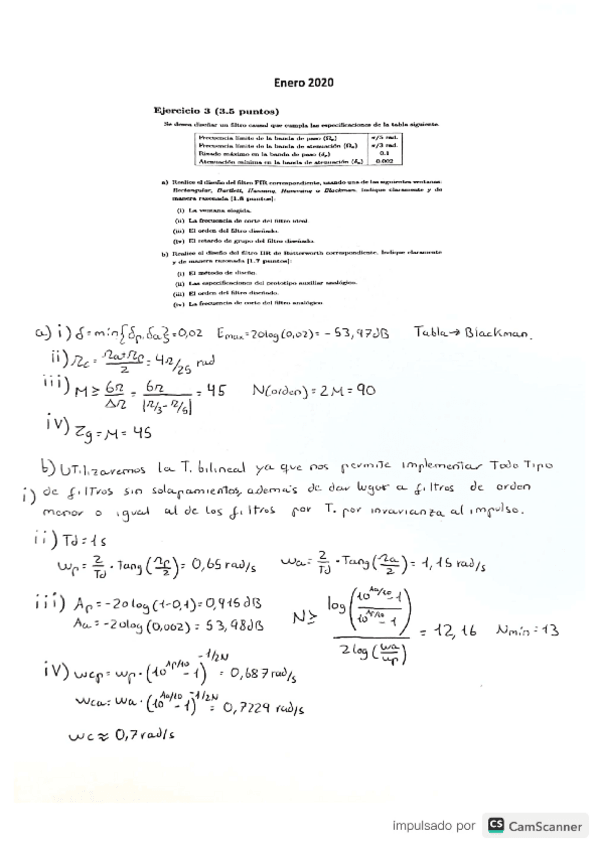 Enero 2020
Ejercicio 3 (3.5 puntos)
Se desea diseñar un filtro causal que cumpla las especificaciones de la tabla siguiente.
Frecuencia límite de la banda de paso (Ωp) π/5 rad.
Frecuencia límite de la banda de atenuación (Ωa) π/3 rad.
Rizado máximo en la banda de paso (δp) 0.1
Atenuación mínima en la banda de atenuación (δa) 0.002
a) Realice el diseño del filtro FIR correspondiente, usando una de las siguientes ventanas:
Rectangular, Bartlett, Hanning, Hamming o Blackman. Indique claramente y de
manera razonada [1.8 puntos]:
(i) La ventana elegida.
(ii) La frecuencia de corte del filtro ideal.
(iii) El orden del filtro diseñado.
(iv) El retardo de grupo del filtro diseñado.
b) Realice el diseño del filtro IIR de Butterworth correspondiente. Indique claramente
y de manera razonada [1.7 puntos]:
(i) El método de diseño.
(ii) Las especificaciones del prototipo auxiliar analógico.
(iii) El orden del filtro diseñado.
(iv) La frecuencia de corte del filtro analógico.
a) i) δ = min{δp, δa} = 0,02 Emax = 20log(0,02) = -53,97dB Tabla → Blackman.
ii) Ωc = Ωa+Ωp/2 = 4π/25 rad
iii) M ≥ 6π/ΔΩ = 6π/|π/3-π/5| = 45 N(orden) = 2M = 90
iv) Zg = M = 45
b) Utilizaremos la T. bilineal ya que nos permite implementar Todo Tipo
i) de filtros sin solapamientos, además de dar lugar a filtros de orden
menor o igual al de los filtros por T. por invarianza al impulso.
ii) Td = 1s
wp = 2/Td · Tang(Ωp/2) = 0,65 rad/s wa = 2/Td · Tang(Ωa/2) = 1,15 rad/s
iii) Ap = -20log(1-0,1) = 0,915dB
Aa = -20log(0,002) = 53,98dB N ≥ log((10^Aa/10 -1)/(10^Ap/10 -1)) / 2log(wa/wp) = 12,16 Nmin = 13
iv) wcp = wp · (10^Ap/10 -1)^-1/2N = 0,687 rad/s
wca = wa · (10^Aa/10 -1)^-1/2N = 0,7229 rad/s
wc ≈ 0,7 rad/s
impulsado por CS CamScanner